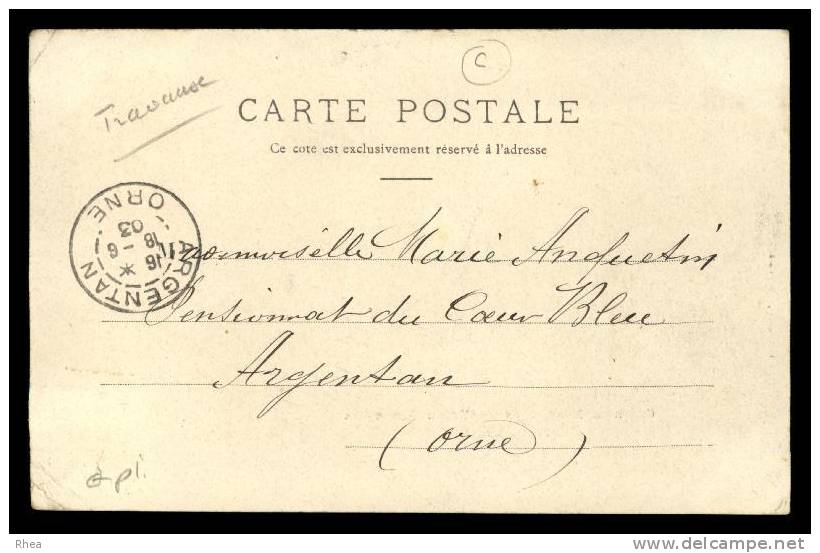 C
Travause
CARTE POSTALE
Ce cote est exclusivement réservé à l'adresse
ARGENTAN ORNE
16 * 6 18 03
Mademoiselle Marie Anquetin
Pensionnat du Cœur Bleu
Argentan
(Orne)
pl.
Rhea
www.delcampe.net